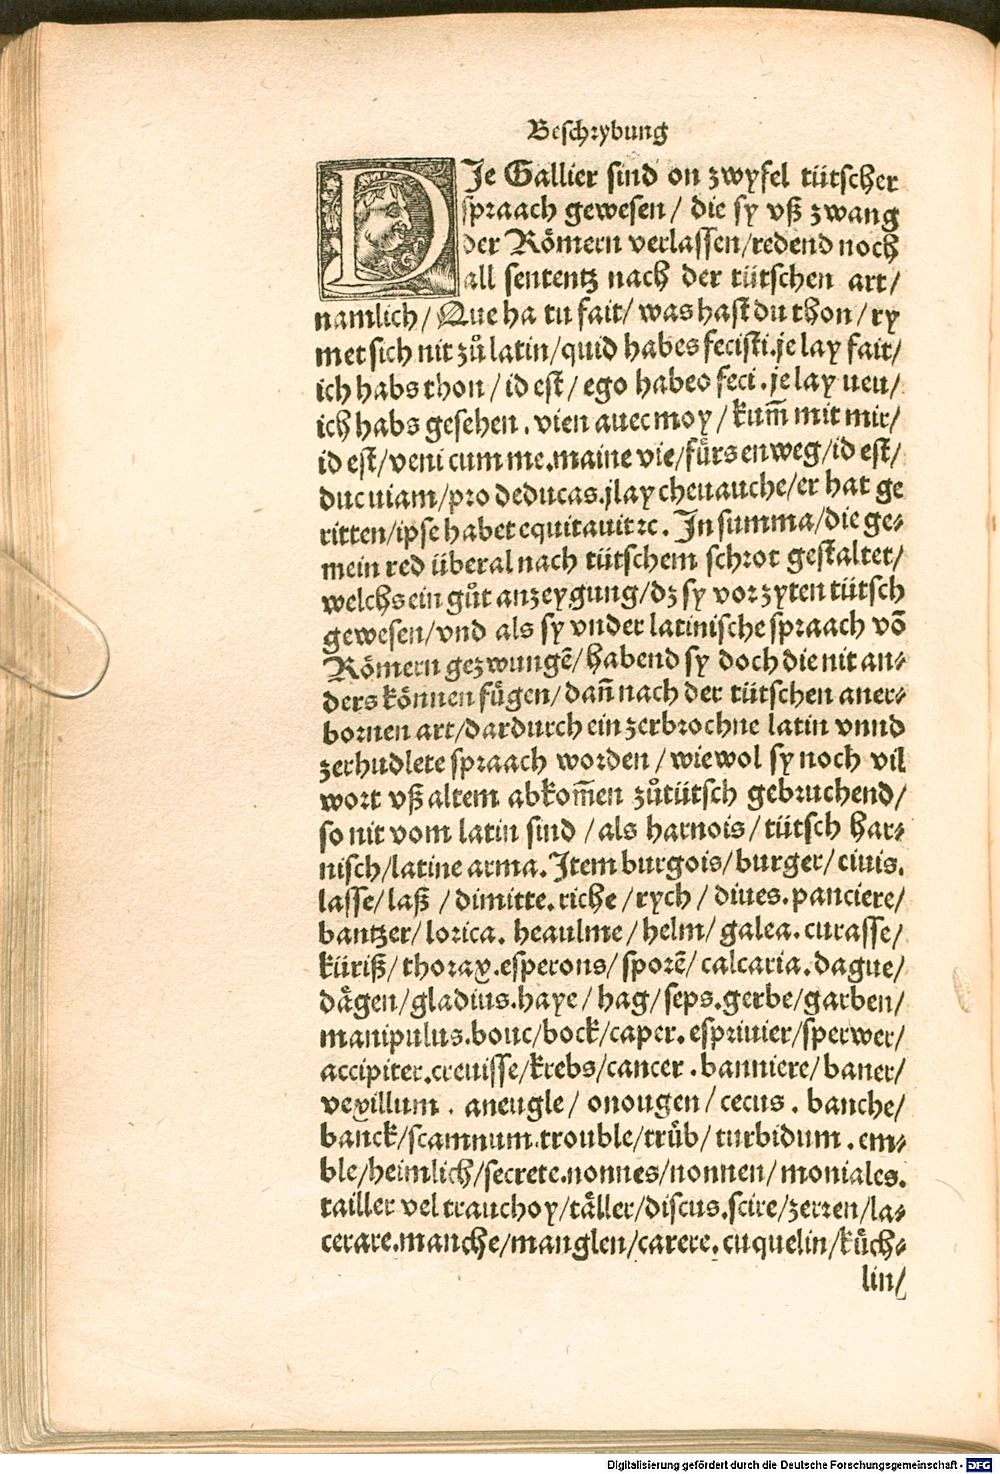 Beschrybung
DJe Gallier sind on zwyfel tütscher
spraach gewesen/ die sy vß zwang
der Römern verlassen/redend noch
all sententz nach der tütschen art/
namlich/ Que ha tu fait/ was hast du thon/ ry
met sich nit zů latin/quid habes fecisti.je lay fait/
ich habs thon/ id est/ ego habeo feci. je lay ueu/
ich habs gesehen. vien auec moy/ kum̃ mit mir/
id est/veni cum me.maine vie/fürs enweg/id est/
duc uiam/pro deducas.jlay cheuauche/er hat ge
ritten/ipse habet equitauit ꝛc. Jn summa/die ge⸗
mein red überal nach tütschem schrot gestaltet/
welchs ein gůt anzeygung/dz sy vor zyten tütsch
gewesen/vnd als sy vnder latinische spraach võ
Römern gezwungẽ/ habend sy doch die nit an⸗
ders können fůgen/ dañ nach der tütschen aner⸗
bornen art/dardurch ein zerbrochne latin vnnd
zerhudlete spraach worden/ wiewol sy noch vil
wort vß altem abkom̃en zů tütsch gebruchend/
so nit vom latin sind/ als harnois/ tütsch har⸗
nisch/latine arma. Jtem burgois/burger/ciuis.
lasse/ laß/ dimitte.riche/rych/ diues.panciere/
bantzer/ lorica. heaulme/ helm/ galea.curasse/
küriß/ thorax.esperons/ sporẽ/ calcaria.dague/
dägen/gladius.haye/ hag/ seps.gerbe/garben/
manipulus.bouc/bock/caper. espriuier/sperwer/
accipiter.creuisse/krebs/cancer. banniere/ baner/
vexillum. aneugle/ onougen/ cecus. banche/
banck/scamnum.trouble/trüb/ turbidum. em⸗
ble/heimlich/secrete.nonnes/nonnen/ moniales.
tailler vel trauchoy/täller/discus.scire/zerren/la⸗
cerare.manche/manglen/carere.cuquelin/küch⸗
lin/
Digitalisierung gefördert durch die Deutsche Forschungsgemeinschaft - DFG